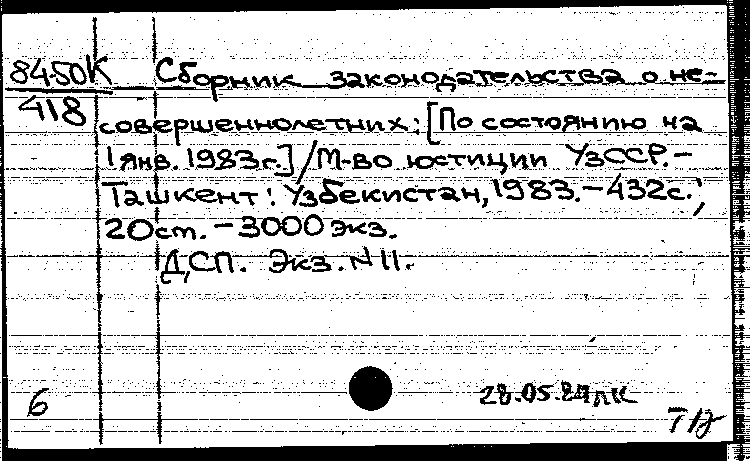 84-50К
418
Сборник законодательства о не-
совершеннолетних: [По состоянию на
1 янв. 1983г.] / М-во юстиции УзССР.-
Ташкент: Узбекистан, 1983.-432с.;
20см.-3000 экз.
ДСП. Экз. N 11.
6
28.05.84